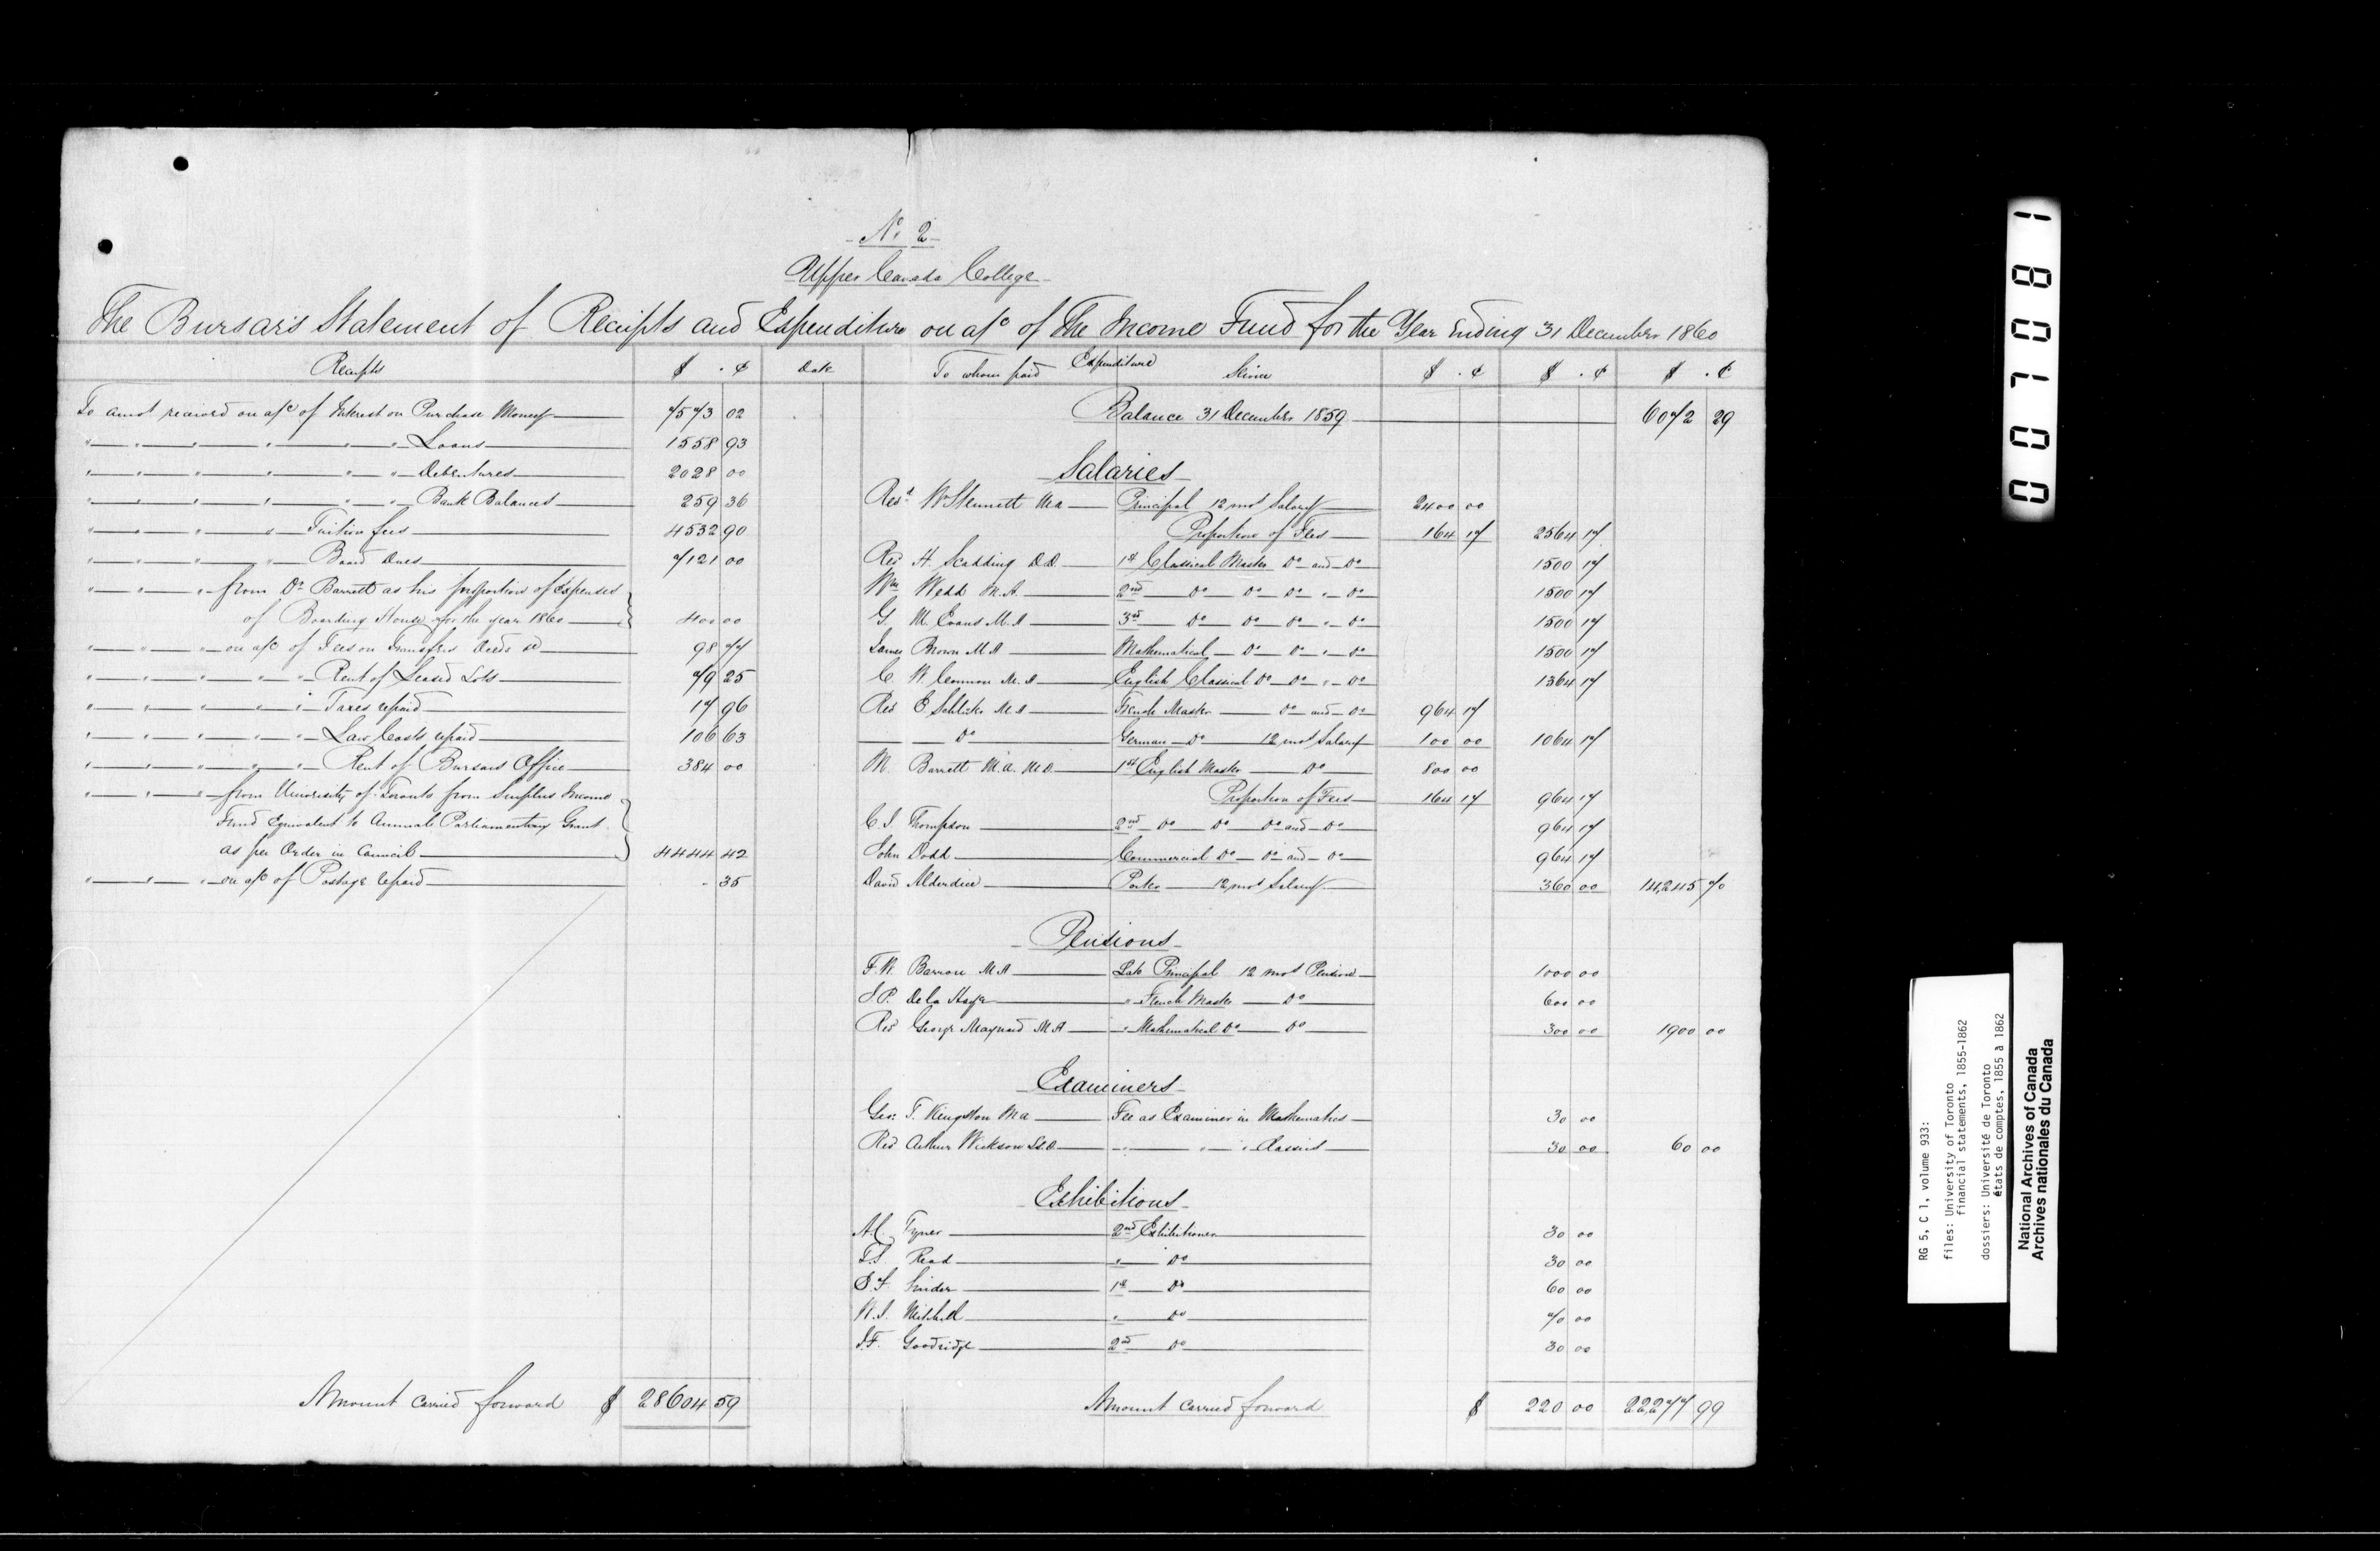 No. 2
Upper Canada College
The Bursar's Statement of Receipts and Expenditure on a/c of The Income Fund for the Year Ending 31 December 1860
Receipts $ . ¢ Date To whom paid Expenditure Service $ . ¢ $ . ¢ $ . ¢
To amot received on a/c of Interest on Purchase Money 7573 02
" " " " " " Loans 1558 93
" " " " " Debentures 2028 00
" " " " " " Bank Balances 259 36
" " " " Tuition fees 4532 90
" " " " Board Dues 7121 00
" " " from Dr Barrett as his proportion of Expenses
of Boarding House for the year 1860 400 00
" " " on a/c of Fees on Transfers Deeds &c 98 77
" " " " " Rent of Leased Lots 79 25
" " " " " Taxes repaid 17 96
" " " " " Law Costs repaid 106 63
" " " " " Rent of Bursars Office 384 00
" " " from University of Toronto from Surplus Income
Fund Equivalent to Annual Parliamentary Grant
as per Order in Council 4444 42
" " " on a/c of Postage repaid . 35
Amount carried forward $ 28604 59
Balance 31 December 1859 6072 29
Salaries
Revd W Stennett M A Principal 12 mos Salary 2400 00
Proportion of Fees 164 17 2564 17
Rev H. Scadding D.D. 1st Classical Master Do and Do 1500 17
Wm Wedd M.A. 2nd Do Do Do " Do 1500 17
G. M. Evans M.A 3rd Do Do Do " Do 1500 17
James Brown M A Mathematical Do Do " Do 1500 17
C. W Connon M.A English Classical Do Do " Do 1364 17
Rev E Schluter M A French Master Do and Do 964 17
Do German Do 12 mos Salary 100 00 1064 17
M. Barrett M.A. M.D. 1st English Master Do 800 00
Proportion of Fees 164 17 964 17
C. J. Thompson 2nd Do Do Do and Do 964 17
John Dodd Commercial Do Do and Do 964 17
David Alderdice Porter 12 mos Salary 360 00 14,245 70
Pensions
F. W. Barron M A Late Principal 12 mos Pension 1000 00
J. P. De la Haye " French Master Do 600 00
Rev George Maynard M A " Mathematical Do Do 300 00 1900 00
Examiners
Geo: T. Kingston M A Fee as Examiner in Mathematics 30 00
Rev Arthur Wickson LL.D " " " Classics 30 00 60 00
Exhibitions
A. C. Tyner 2nd Exhibitioner 30 00
T. S. Read " Do 30 00
E. F. Snider 1st Do 60 00
W. J. Mitchell " Do 70 00
J. F. Goodridge 2nd Do 30 00
Amount carried forward $ 220 00 22,277 99
007081
RG 5, C 1, volume 933:
files: University of Toronto
financial statements, 1855-1862
dossiers: Université de Toronto
états de comptes, 1855 à 1862
National Archives of Canada
Archives nationales du Canada